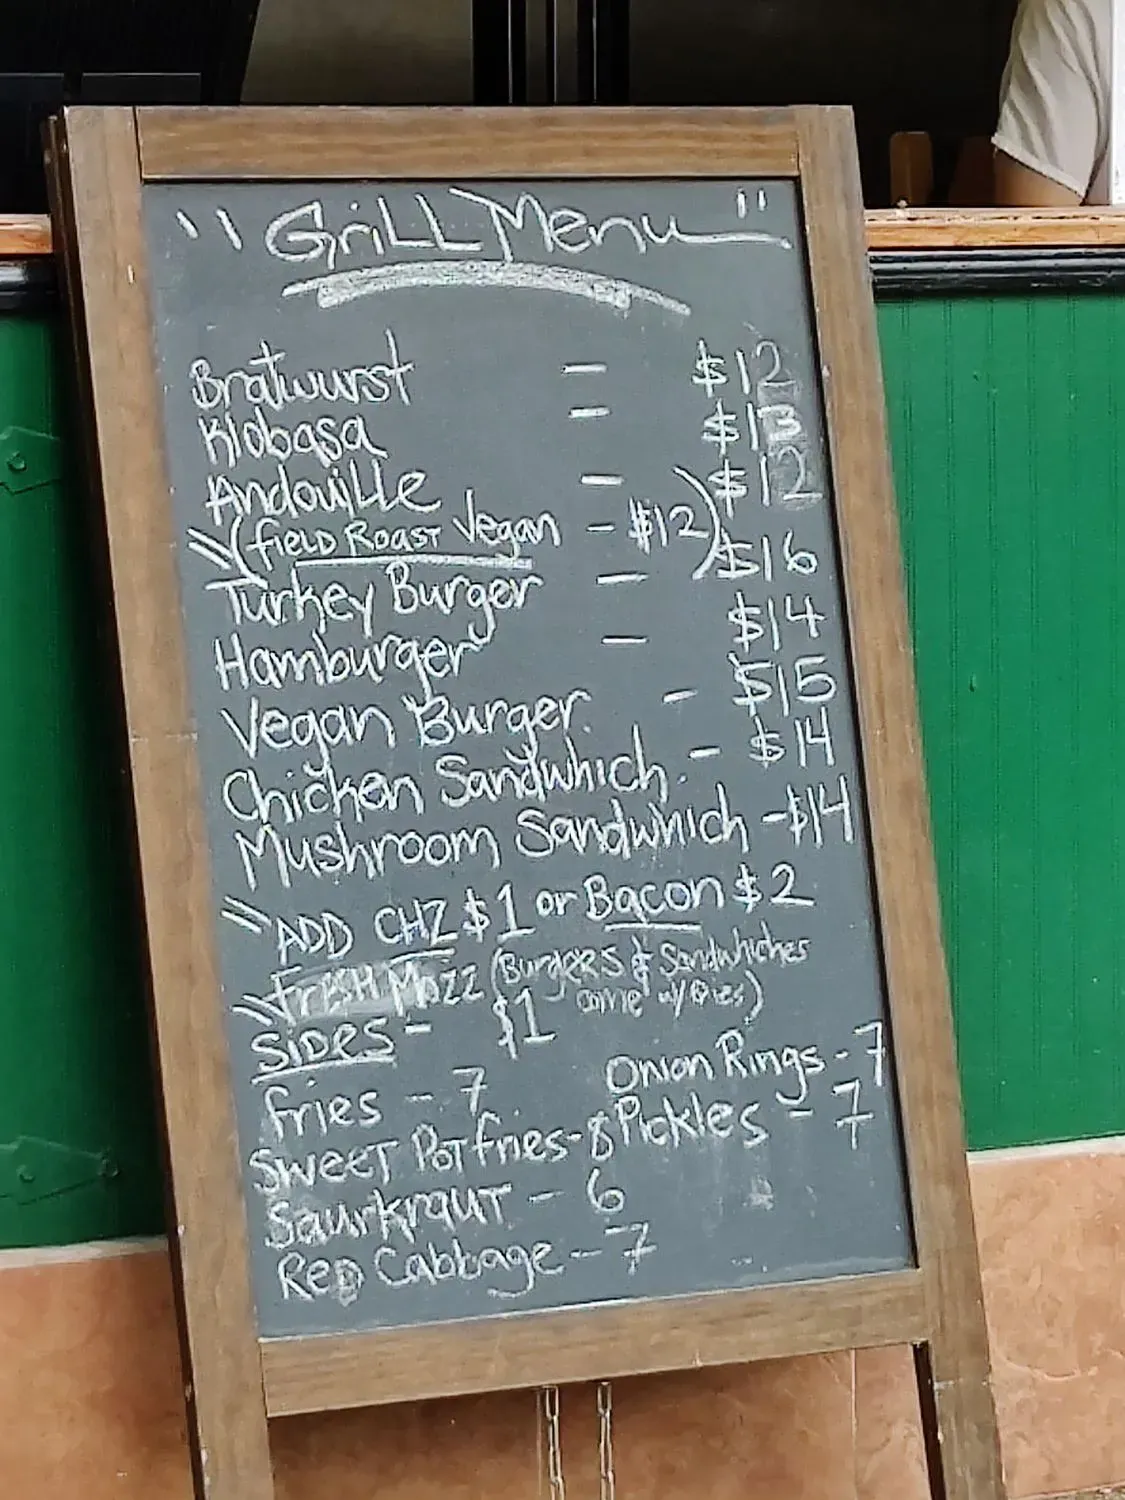 " Grill Menu "
Bratwurst - $12
Klobasa - $13
Andouille - $12
(Field Roast Vegan - $12)
Turkey Burger - $16
Hamburger - $14
Vegan Burger - $15
Chicken Sandwhich - $14
Mushroom Sandwhich - $14
ADD CHZ $1 or Bacon $2
FRESH Mozz $1 (Burgers & Sandwhiches
come w/ fries)
SIDES -
Fries - 7
Onion Rings - 7
Sweet Pot fries - 8
Pickles - 7
Saurkraut - 6
Red Cabbage - 7